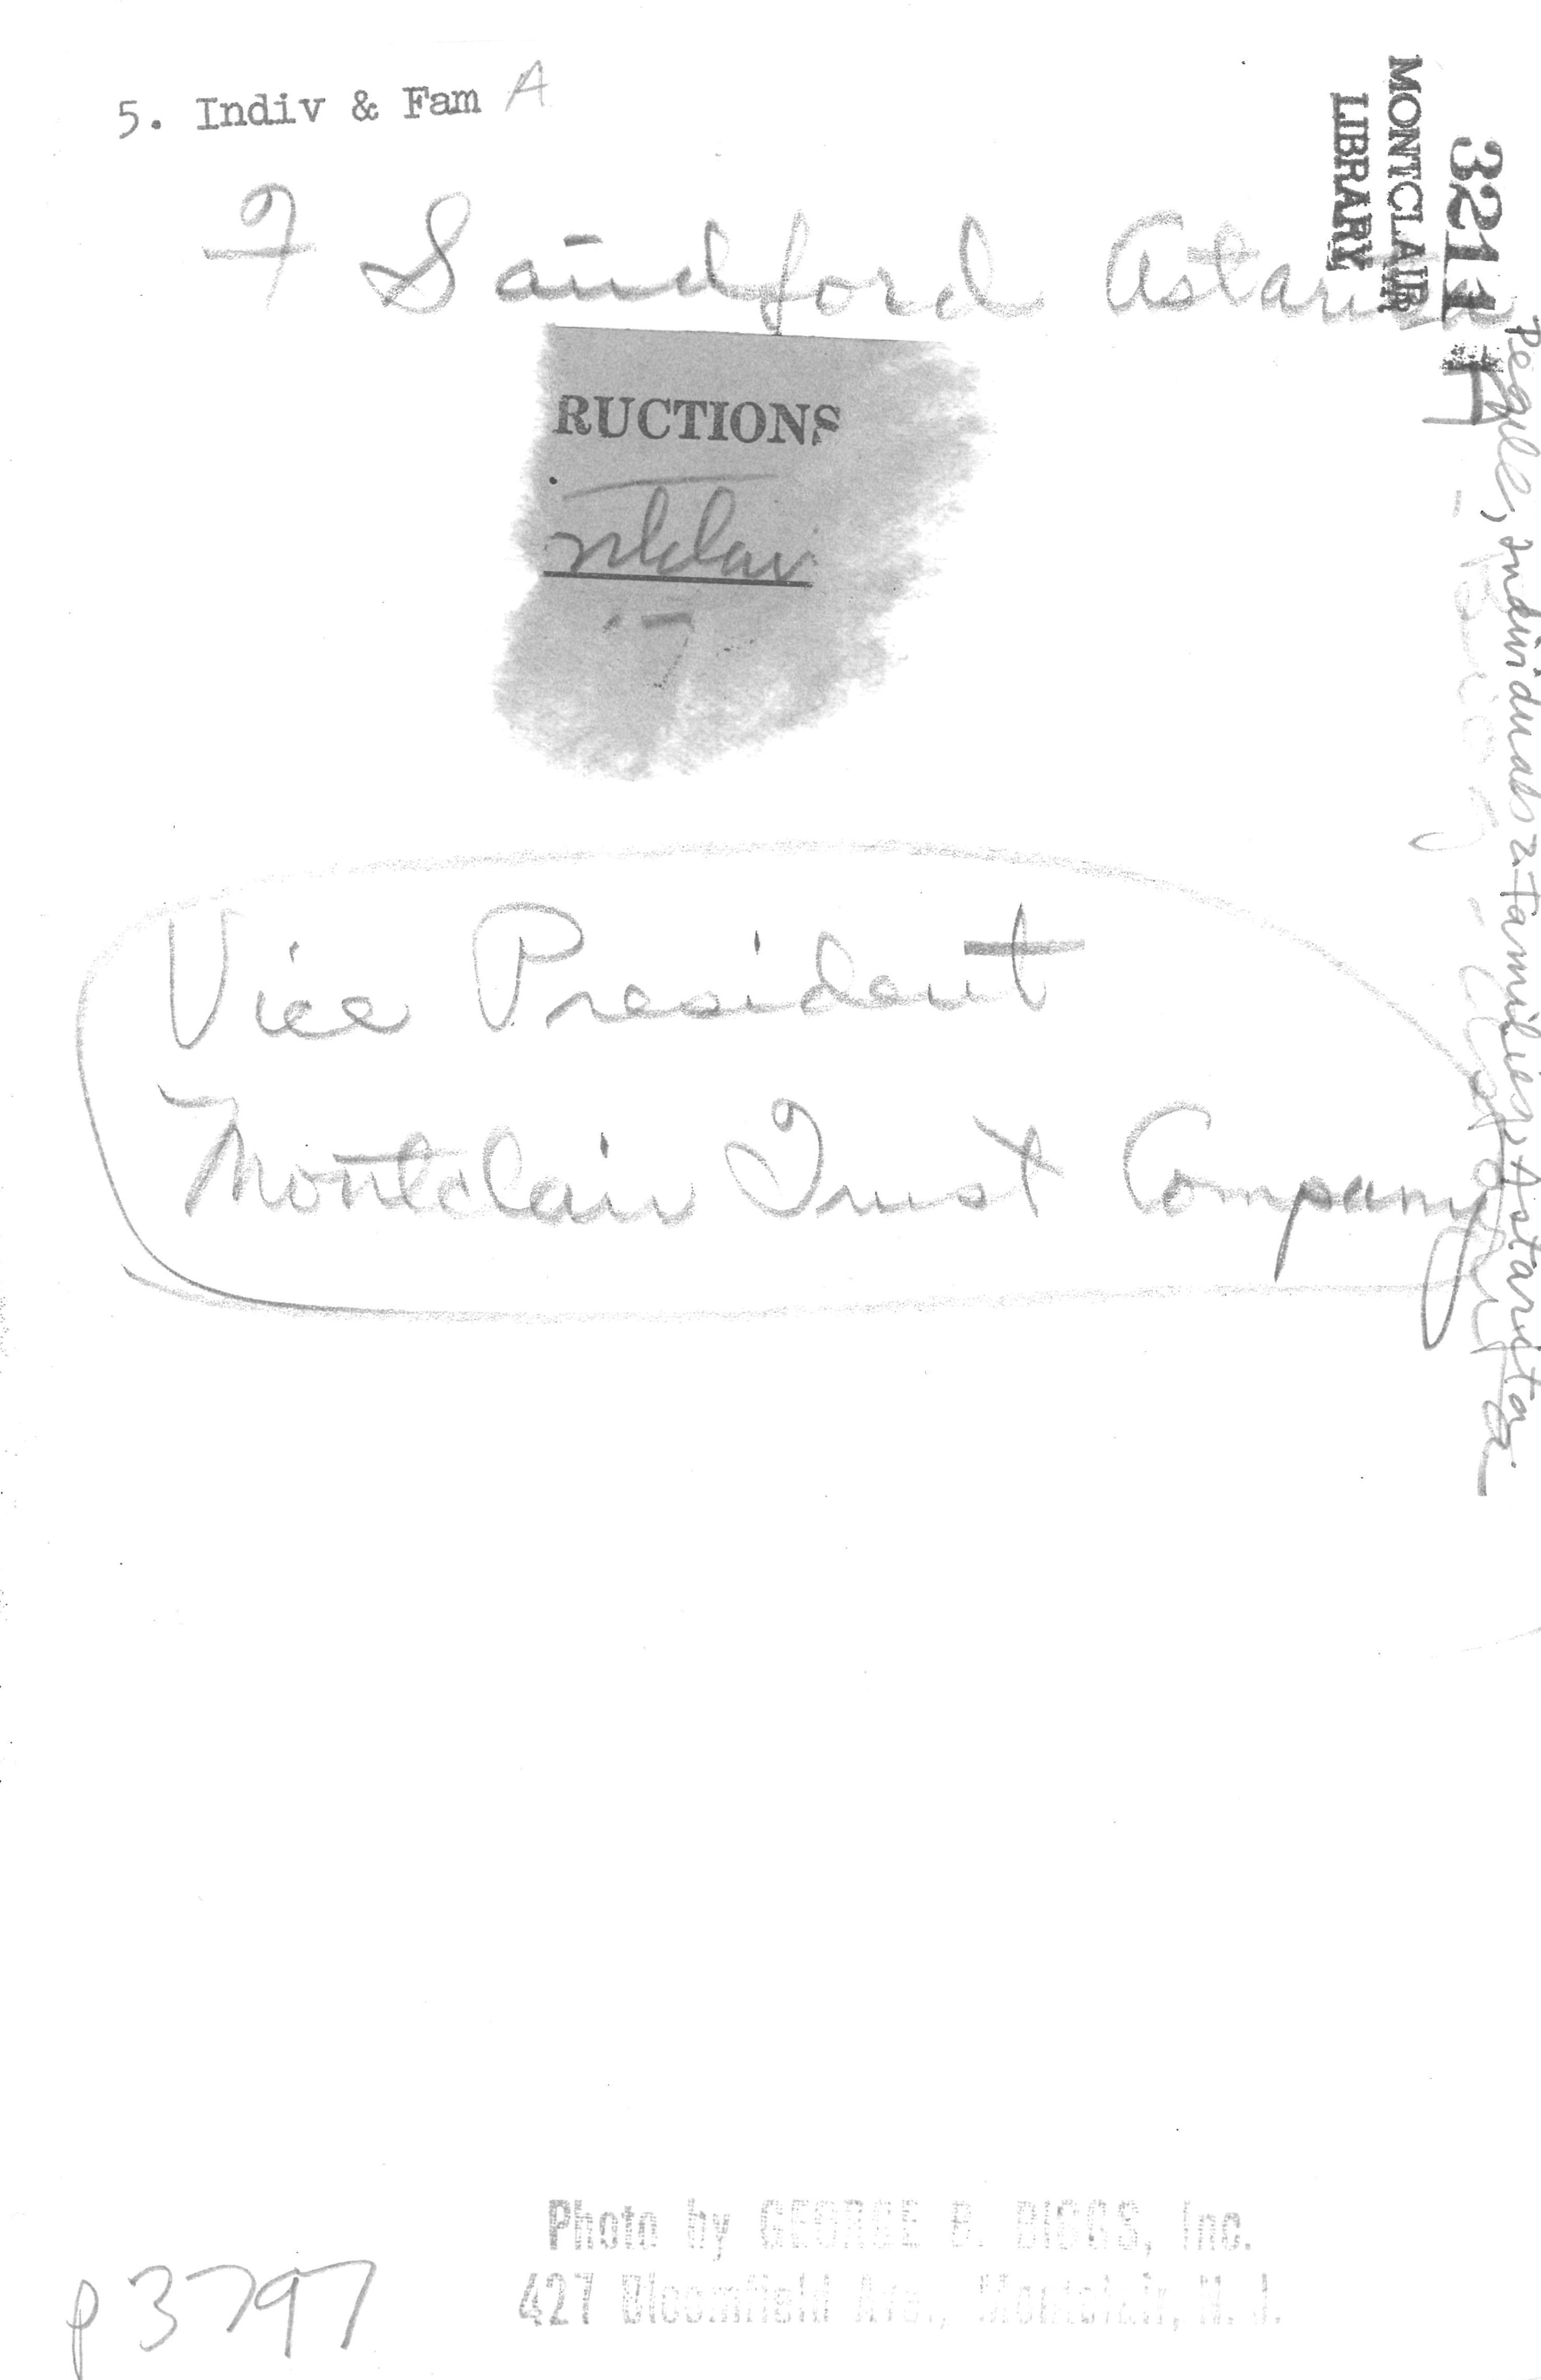 5. Indiv & Fam A
F Sandford Astarita
MONTCLAIR
LIBRARY
3211
RUCTIONS
ntclair
'7
Vice President
Montclair Trust Company
People, Individuals & Families, Astarita
Photo by GEORGE B. BIGGS, Inc.
427 Bloomfield Ave., Montclair, N. J.
p3797